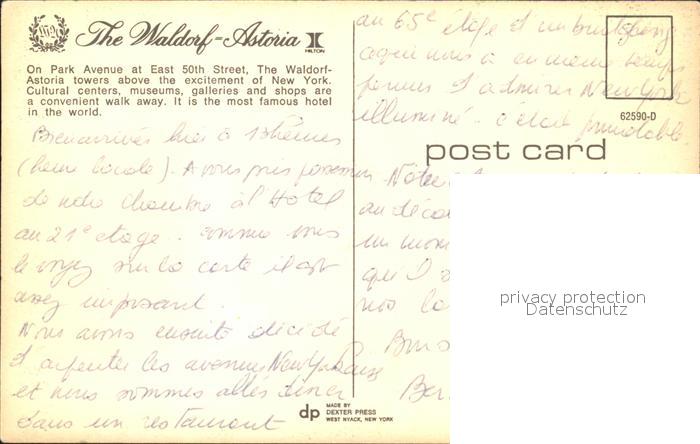 The Waldorf-Astoria
HILTON
On Park Avenue at East 50th Street, The Waldorf-
Astoria towers above the excitement of New York.
Cultural centers, museums, galleries and shops are
a convenient walk away. It is the most famous hotel
in the world.
62590-D
post card
Bien arrivés hier à
(heure locale). Avons pris possession
de notre chambre à l'Hotel
au 21e étage. comme vous
le voyez sur la carte il est
assez imposant.
Nous avons ensuite décidé
d'arpenter les avenues New Yorkaises
et nous sommes allés diner
dans un restaurant
au 65e étage et un
ce qui nous a en même temps
permis d'admirer New York
illuminé. c'était formidable.
Notre
au
un
que
nos
Ber
privacy protection
Datenschutz
dp
MADE BY
DEXTER PRESS
WEST NYACK, NEW YORK